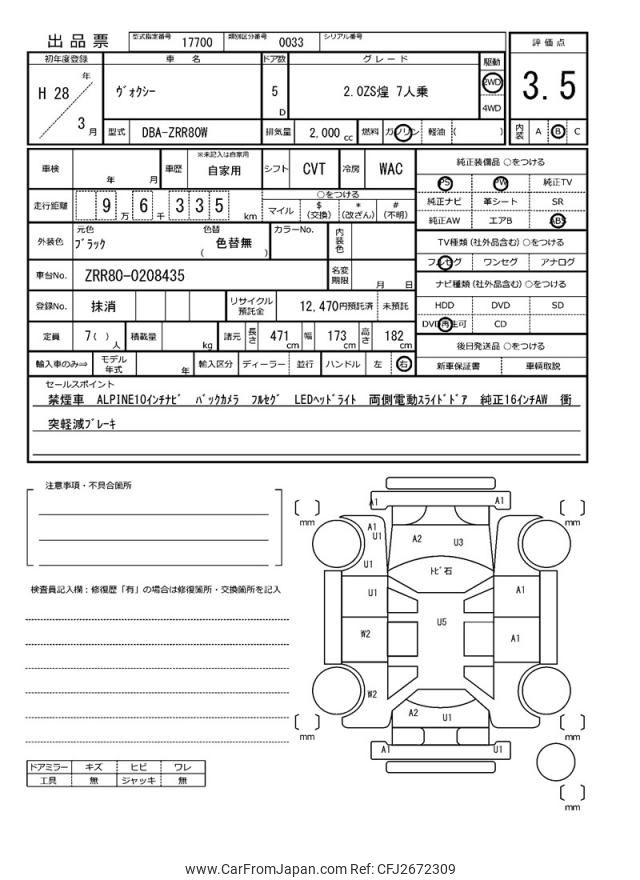 出品票 型式指定番号 17700 類別区分番号 0033 シリアル番号
評価点
3.5
内装 A B C
初年度登録 車名 ドア数 グレード 駆動
H 28 年 3 月
ヴォクシー 5 D 2.0ZS煌 7人乗 2WD 4WD
型式 DBA-ZRR80W 排気量 2,000 cc 燃料 ガソリン 軽油 ( )
車検 年 月 車歴 ※未記入は自家用 自家用 シフト CVT 冷房 WAC
走行距離 9 万 6 千 3 3 5 km
○をつける
マイル $(交換) *(改ざん) #(不明)
外装色 元色 ブラック 色替 ( 色替無 ) カラーNo. 内装色
車台No. ZRR80-0208435 名変期限 月 日
登録No. 抹消 リサイクル預託金 12,470円預託済 未預託
定員 7( ) 人 積載量 kg 諸元 長さ 471 cm 幅 173 cm 高さ 182 cm
輸入車のみ⇒ モデル年式 年 輸入区分 ディーラー 並行 ハンドル 左 右
純正装備品 ○をつける
PS PW 純正TV
純正ナビ 革シート SR
純正AW エアB ABS
TV種類(社外品含む) ○をつける
フルセグ ワンセグ アナログ
ナビ種類(社外品含む) ○をつける
HDD DVD SD
DVD再生可 CD
後日発送品 ○をつける
新車保証書 車輌取説
セールスポイント
禁煙車 ALPINE10インチナビ バックカメラ フルセグ LEDヘッドライト 両側電動スライドドア 純正16インチAW 衝
突軽減ブレーキ
注意事項・不具合箇所
検査員記入欄:修復歴「有」の場合は修復箇所・交換箇所を記入
ドアミラー キズ ヒビ ワレ
工具 無 ジャッキ 無
A1 A1
mm mm
A1 U1 A2 U3
U1 トビ石
U1 A1
U5
W2 A1
W2
A2 U1
mm mm
A1 U1
mm
www.CarFromJapan.com Ref: CFJ2672309